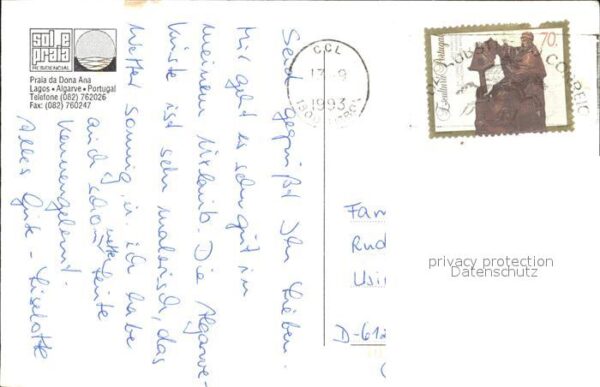 sol e praia
RESIDENCIAL
Praia da Dona Ana
Lagos • Algarve • Portugal
Telefone (082) 762026
Fax: (082) 760247
Seid gegrüßt Ihr Lieben.
Mir geht es sehr gut in
meinem Urlaub. Die Algarve-
küste ist sehr malerisch, das
Wetter sonnig u. ich habe
auch schon nette Leute
kennengelernt.
Alles Gute - Liselotte
CCL
17-9
1993
70.
Portugal
CORREIO
Fam
Rud
Usin
D-612
privacy protection
Datenschutz